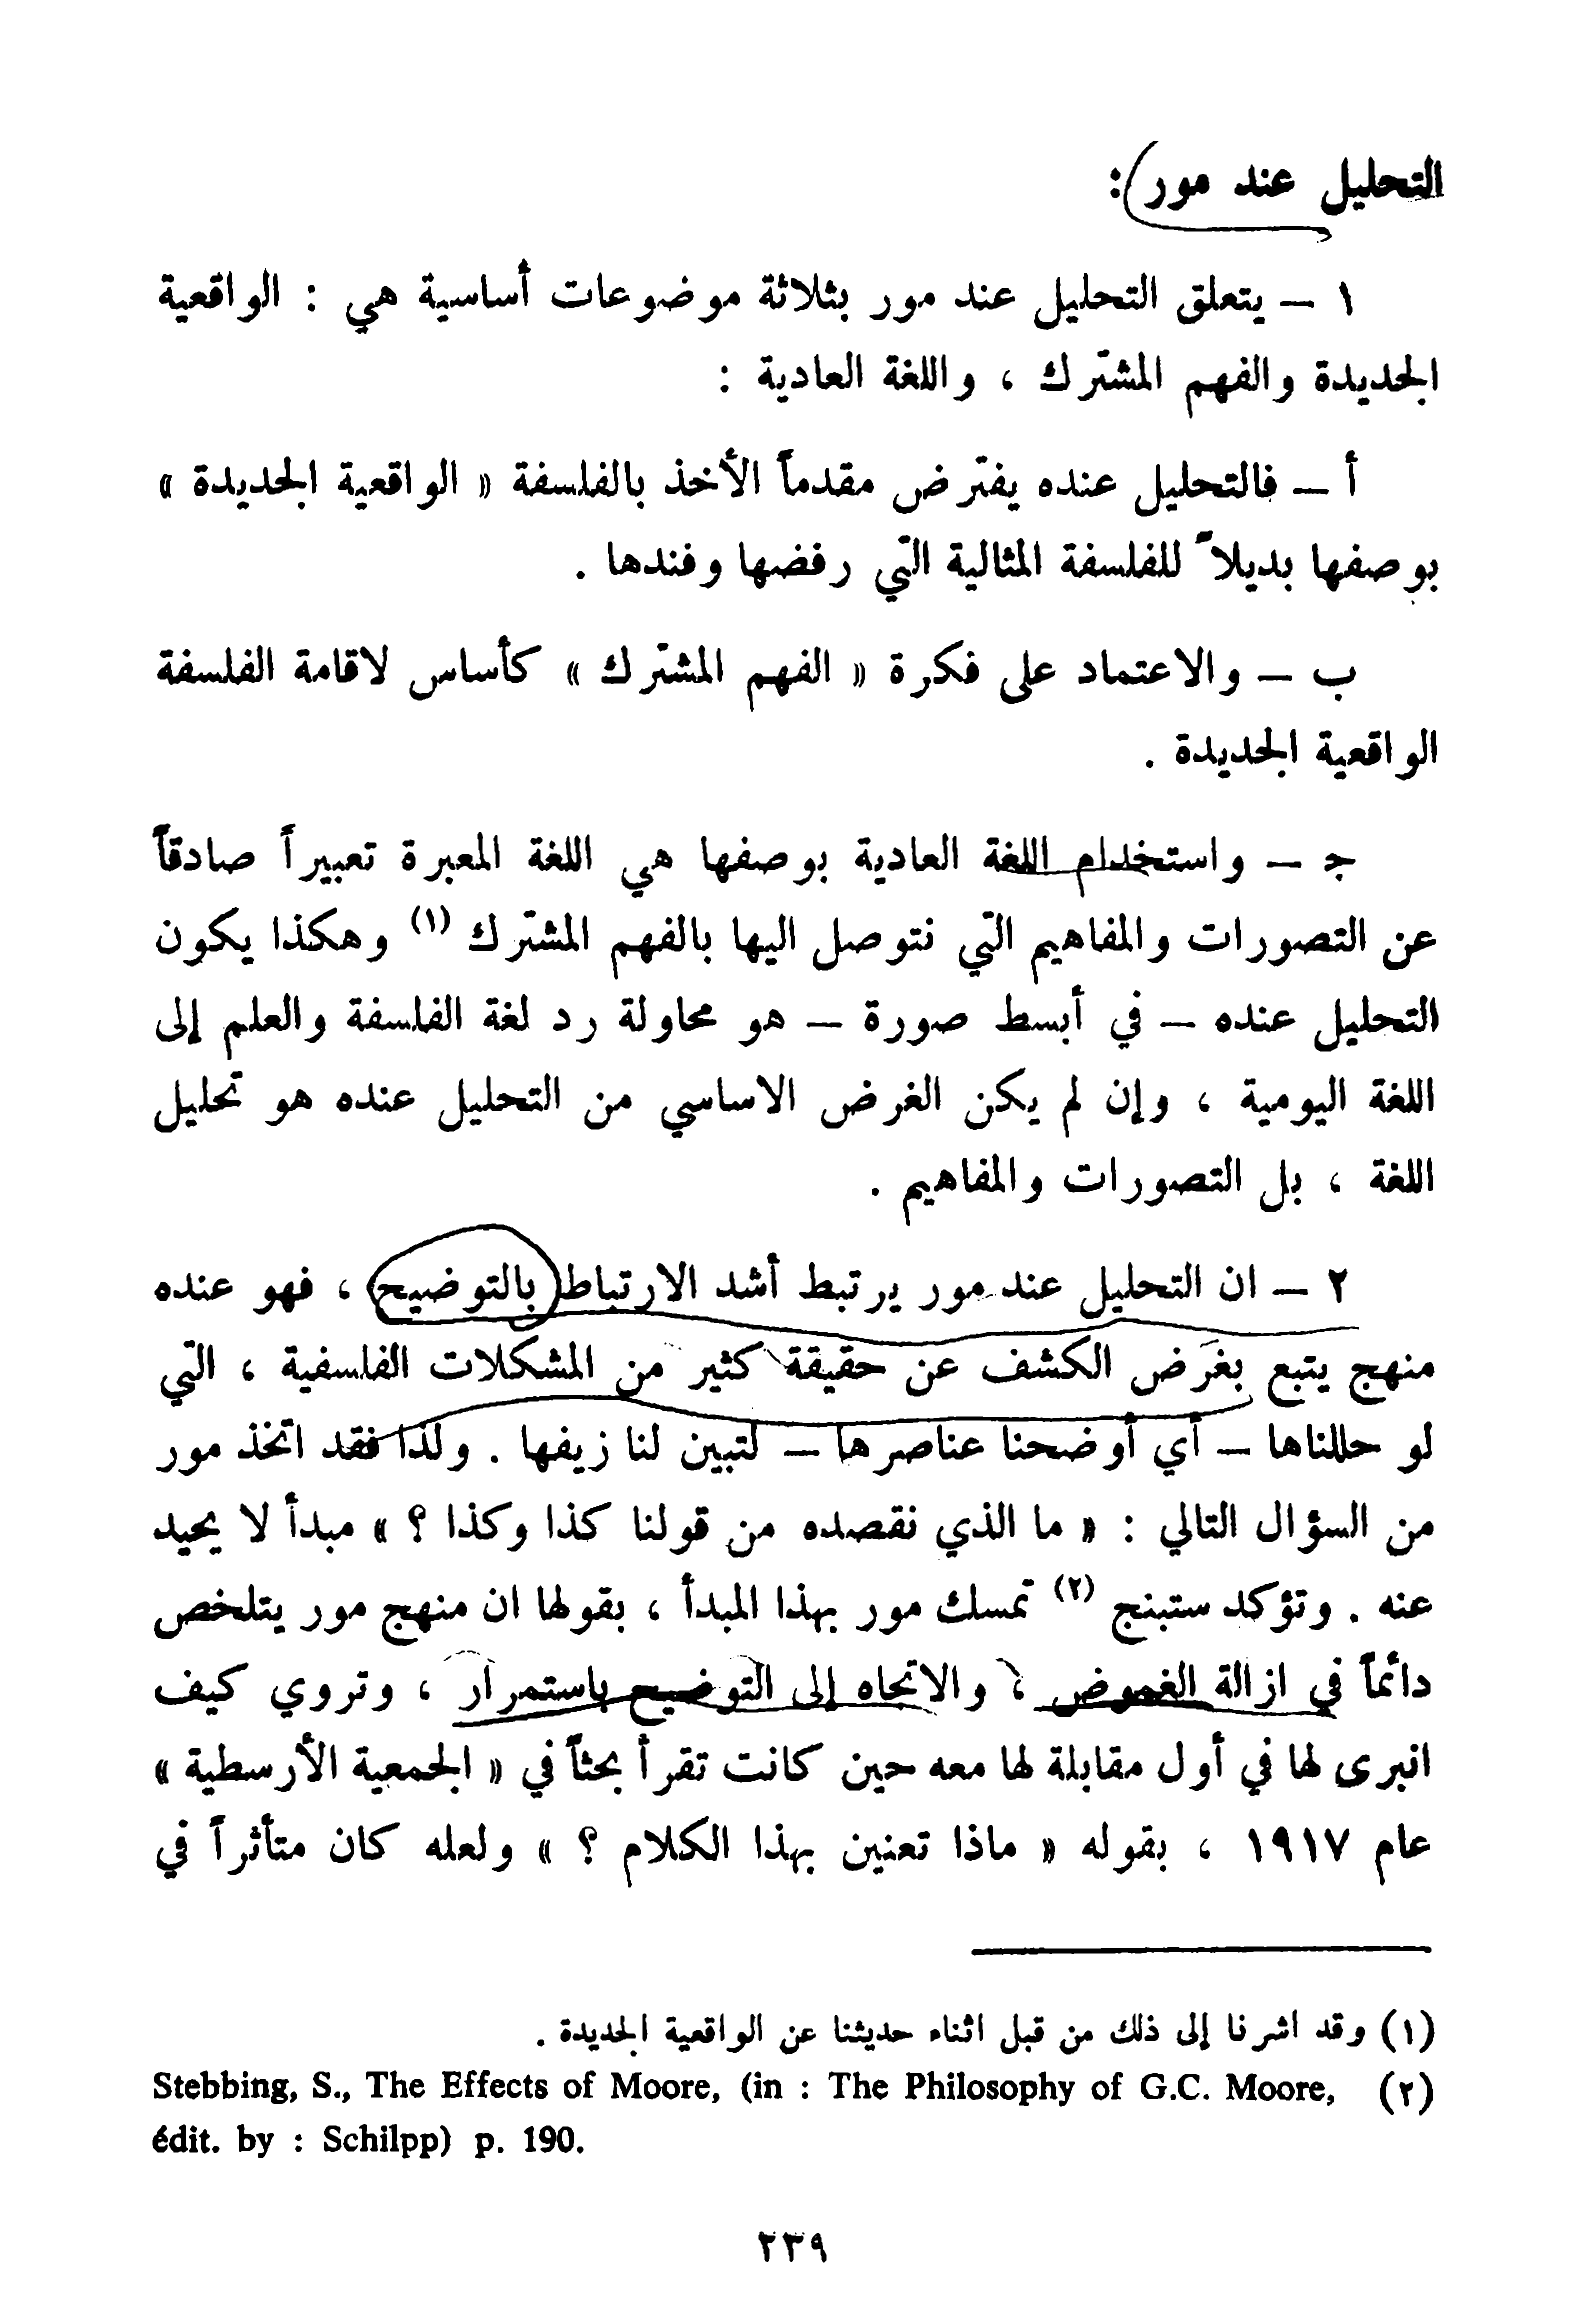 التحليل عند مور :
١ – يتعلق التحليل عند مور بثلاثة موضوعات أساسية هي : الواقعية
الجديدة والفهم المشترك ، واللغة العادية :
أ – فالتحليل عنده يفترض مقدماً الأخذ بالفلسفة « الواقعية الجديدة »
بوصفها بديلاً للفلسفة المثالية التي رفضها وفندها .
ب – والاعتماد على فكرة « الفهم المشترك » كأساس لاقامة الفلسفة
الواقعية الجديدة .
جـ – واستخدام اللغة العادية بوصفها هي اللغة المعبرة تعبيراً صادقاً
عن التصورات والمفاهيم التي نتوصل اليها بالفهم المشترك (١) وهكذا يكون
التحليل عنده – في أبسط صورة – هو محاولة رد لغة الفلسفة والعلم إلى
اللغة اليومية ، وإن لم يكن الغرض الاساسي من التحليل عنده هو تحليل
اللغة ، بل التصورات والمفاهيم .
٢ – ان التحليل عند مور يرتبط أشد الارتباط بالتوضيح ، فهو عنده
منهج يتبع بغرض الكشف عن حقيقة كثير من المشكلات الفلسفية ، التي
لو حللناها – أي أوضحنا عناصرها – لتبين لنا زيفها . ولذا فقد اتخذ مور
من السؤال التالي : « ما الذي نقصده من قولنا كذا وكذا ؟ » مبدأ لا يحيد
عنه . وتؤكد ستبنج (٢) تمسك مور بهذا المبدأ ، بقولها ان منهج مور يتلخص
دائماً في ازالة الغموض ، والاتجاه إلى التوضيح باستمرار ، وتروي كيف
انبرى لها في أول مقابلة لها معه حين كانت تقرأ بحثاً في « الجمعية الأرسطية »
عام ١٩١٧ ، بقوله « ماذا تعنين بهذا الكلام ؟ » ولعله كان متأثراً في
(١) وقد اشرنا إلى ذلك من قبل اثناء حديثنا عن الواقعية الجديدة .
(٢) Stebbing, S., The Effects of Moore, (in : The Philosophy of G.C. Moore,
édit. by : Schilpp) p. 190.
٢٣٩